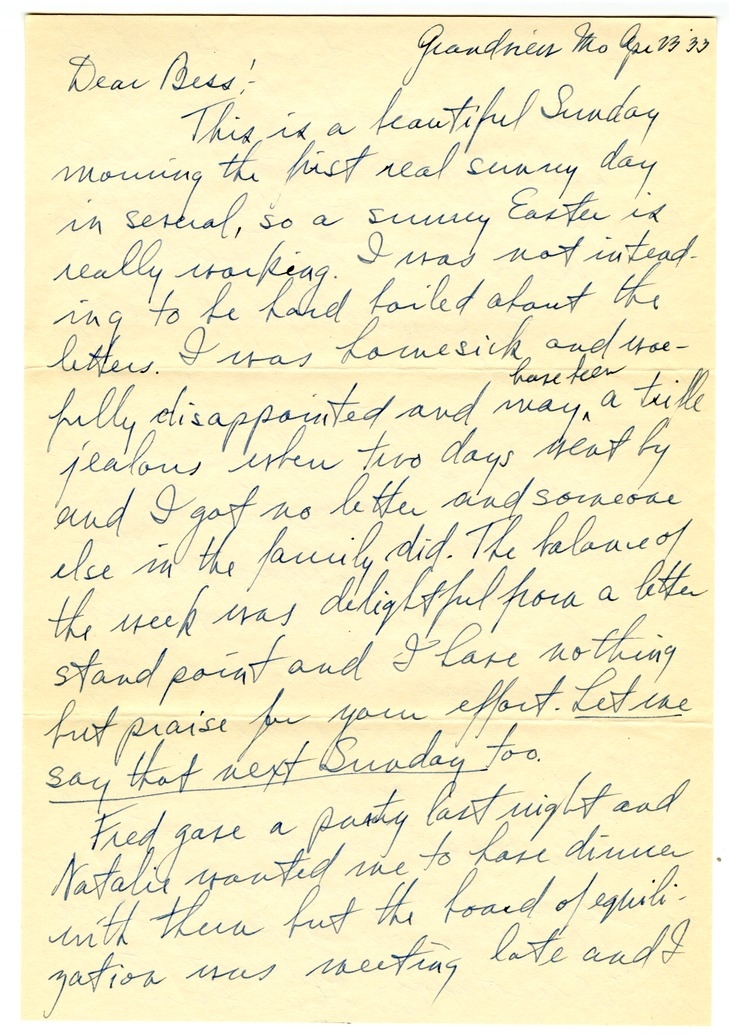 Grandview Mo Apr 23 '33
Dear Bess:-
This is a beautiful Sunday
morning the first real sunny day
in several, so a sunny Easter is
really working. I was not intend-
ing to be hard boiled about the
letters. I was homesick and woe-
fully disappointed and may have been a trifle
jealous when two days went by
and I got no letter and someone
else in the family did. The balance of
the week was delightful from a letter
stand point and I have nothing
but praise for your effort. Let me
say that next Sunday too.
Fred gave a party last night and
Natalie wanted me to have dinner
with them but the board of equili-
zation was meeting late and I